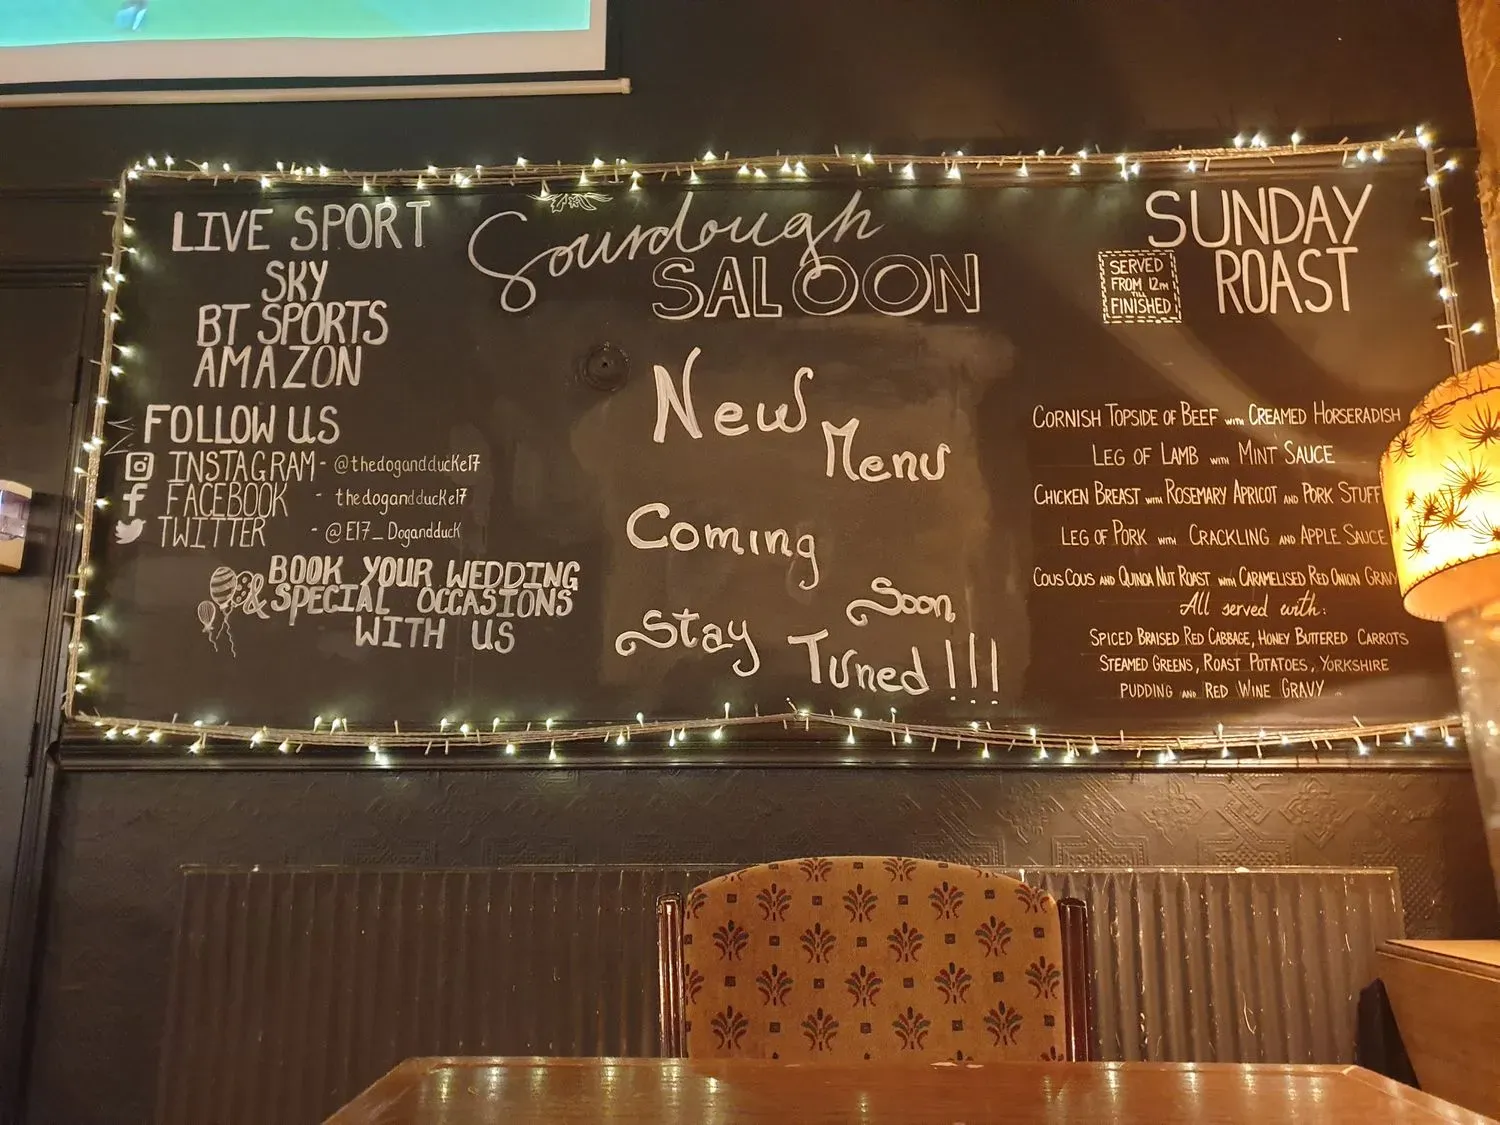 LIVE SPORT
SKY
BT SPORTS
AMAZON
FOLLOW US
INSTAGRAM - @thedogandducke17
FACEBOOK - thedogandducke17
TWITTER - @E17_Dogandduck
BOOK YOUR WEDDING
& SPECIAL OCCASIONS
WITH US
Sourdough
SALOON
New
Menu
Coming
Soon
Stay
Tuned!!!
SUNDAY
ROAST
SERVED
FROM 12PM
TILL
FINISHED!
CORNISH TOPSIDE OF BEEF WITH CREAMED HORSERADISH
LEG OF LAMB WITH MINT SAUCE
CHICKEN BREAST WITH ROSEMARY APRICOT AND PORK STUFF
LEG OF PORK WITH CRACKLING AND APPLE SAUCE
COUS COUS AND QUINOA NUT ROAST WITH CARAMELISED RED ONION GRAVY
All served with:
SPICED BRAISED RED CABBAGE, HONEY BUTTERED CARROTS
STEAMED GREENS, ROAST POTATOES, YORKSHIRE
PUDDING AND RED WINE GRAVY